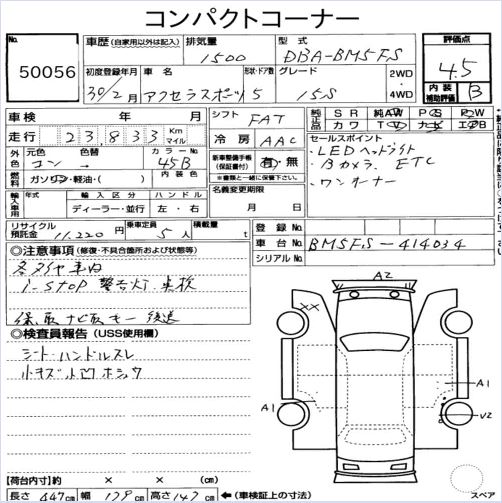 コンパクトコーナー
No.
50056
車歴 (自家用以外は記入)
排気量 1500
型式 DBA-BM5FS
評価点 4.5
初度登録年月 30/2月
車名 アクセラスポーツ
形状・ドア数 5
グレード 15S
2WD
4WD
内装補助評価 B
車検 年 月
シフト FAT
純正品 SR 純AW PS PW
カワ TV ナビ エアB
走行 23,833 Km マイル
冷房 AAC
セールスポイント
・LEDヘッドライト
・Bカメラ ETC
・ワンオーナー
外色 元色 コン → 色替
カラーNo. 45B
新車整備手帳 (保証書付) 有・無
※書類と一緒に保管下さい。
燃料 ガソリン・軽油・( )
内装色
名義変更期限
月 日
輸入車用 年式 輸入区分 ハンドル
ディーラー・並行 左・右
登録No.
リサイクル預託金 11,220円
乗車定員 5人
積載量 t
車台No. BM5FS-414034
シリアルNo.
◎注意事項 (修復・不具合箇所および状態等)
冬タイヤ
i-STOP 警告灯 点検
ナビ
後送
◎検査員報告 (USS使用欄)
シート・ハンドルスレ
小キズ小凹
A2
XX
A1
A1
V2
[荷台内寸] 約 × × cm
長さ 447cm 幅 179cm 高さ 147cm
←(車検証上の寸法)
スペア